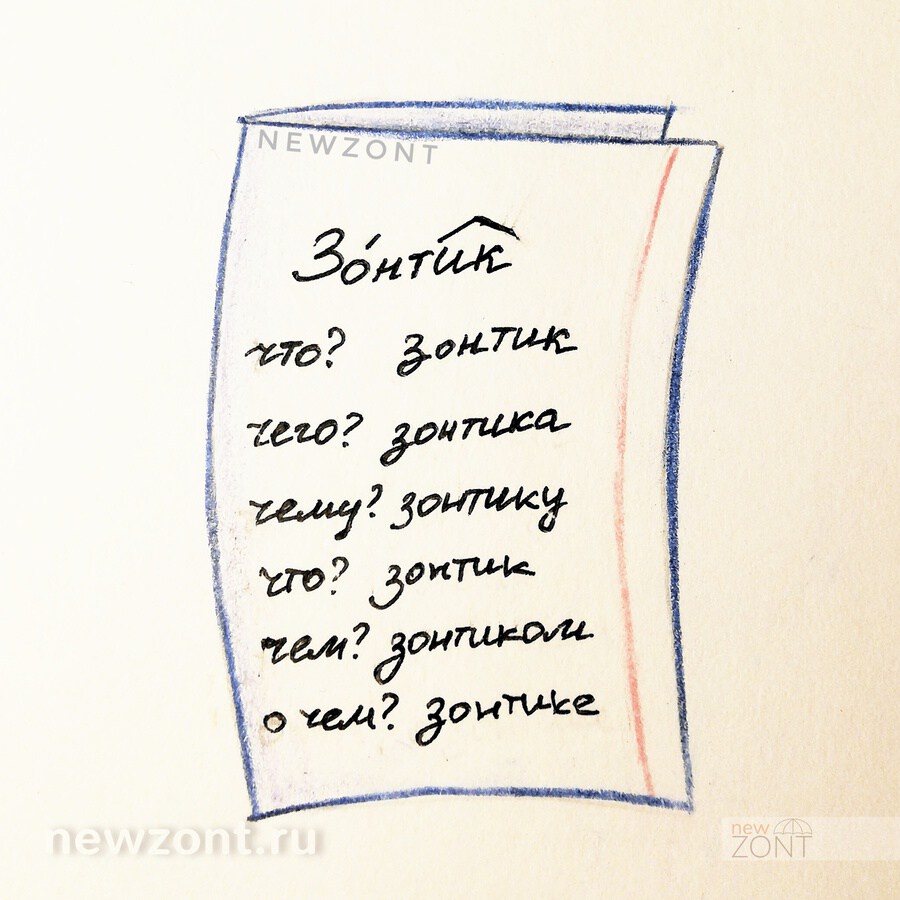 NEWZONT
Зо́нтик
что? зонтик
чего? зонтика
чему? зонтику
что? зонтик
чем? зонтиком
о чем? зонтике
newzont.ru
new
ZONT